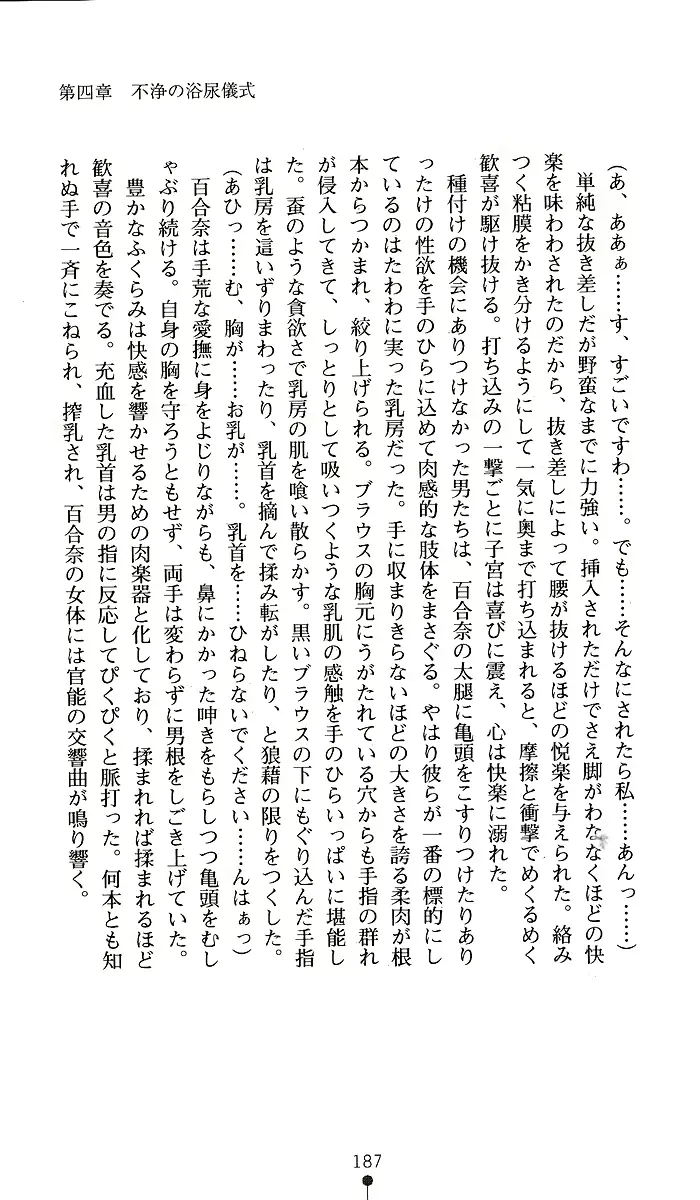 第四章　不浄の浴尿儀式
（あ、ああぁ……す、すごいですわ……。でも……そんなにされたら私……あんっ……）
　単純な抜き差しだが野蛮なまでに力強い。挿入されただけでさえ脚がわななくほどの快
楽を味わわされたのだから、抜き差しによって腰が抜けるほどの悦楽を与えられた。絡み
つく粘膜をかき分けるようにして一気に奥まで打ち込まれると、摩擦と衝撃でめくるめく
歓喜が駆け抜ける。打ち込みの一撃ごとに子宮は喜びに震え、心は快楽に溺れた。
　種付けの機会にありつけなかった男たちは、百合奈の太腿に亀頭をこすりつけたりあり
ったけの性欲を手のひらに込めて肉感的な肢体をまさぐる。やはり彼らが一番の標的にし
ているのはたわわに実った乳房だった。手に収まりきらないほどの大きさを誇る柔肉が根
本からつかまれ、絞り上げられる。ブラウスの胸元にうがたれている穴からも手指の群れ
が侵入してきて、しっとりとして吸いつくような乳肌の感触を手のひらいっぱいに堪能し
た。蚕のような貪欲さで乳房の肌を喰い散らかす。黒いブラウスの下にもぐり込んだ手指
は乳房を這いずりまわったり、乳首を摘んで揉み転がしたり、と狼藉の限りをつくした。
（あひっ……む、胸が……お乳が……。乳首を……ひねらないでください……んはぁっ）
　百合奈は手荒な愛撫に身をよじりながらも、鼻にかかった呻きをもらしつつ亀頭をむし
ゃぶり続ける。自身の胸を守ろうともせず、両手は変わらずに男根をしごき上げていた。
　豊かなふくらみは快感を響かせるための肉楽器と化しており、揉まれれば揉まれるほど
歓喜の音色を奏でる。充血した乳首は男の指に反応してぴくぴくと脈打った。何本とも知
れぬ手で一斉にこねられ、搾乳され、百合奈の女体には官能の交響曲が鳴り響く。
187